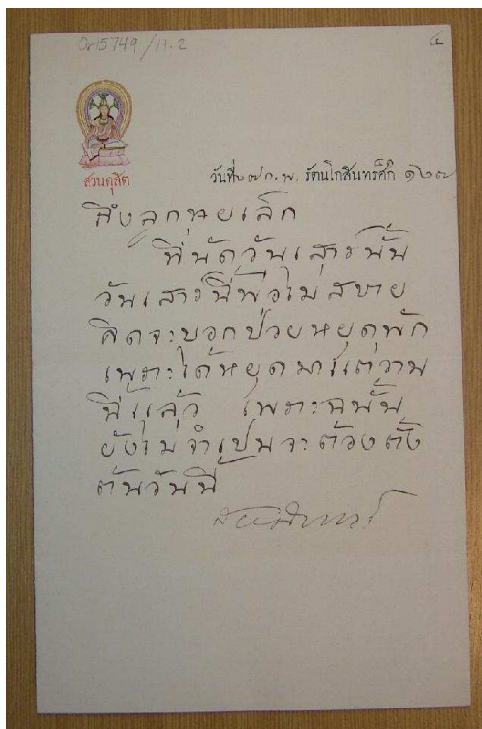 Or.15749/11.2
๔
สวนดุสิต
วันที่ ๒๗ ก.พ. รัตนโกสินทรศก ๑๒๗
ถึงลูกหญิงเล็ก
ที่นัดวันเสาร์นั้น
วันเสาร์นี้พ่อไม่สบาย
คิดจะบอกป่วยหยุดพัก
เพราะได้หยุดมาแต่วาน
นี้แล้ว เพราะฉนั้น
ยังไม่จำเปนจะต้องตั้ง
ต้นวันนี้